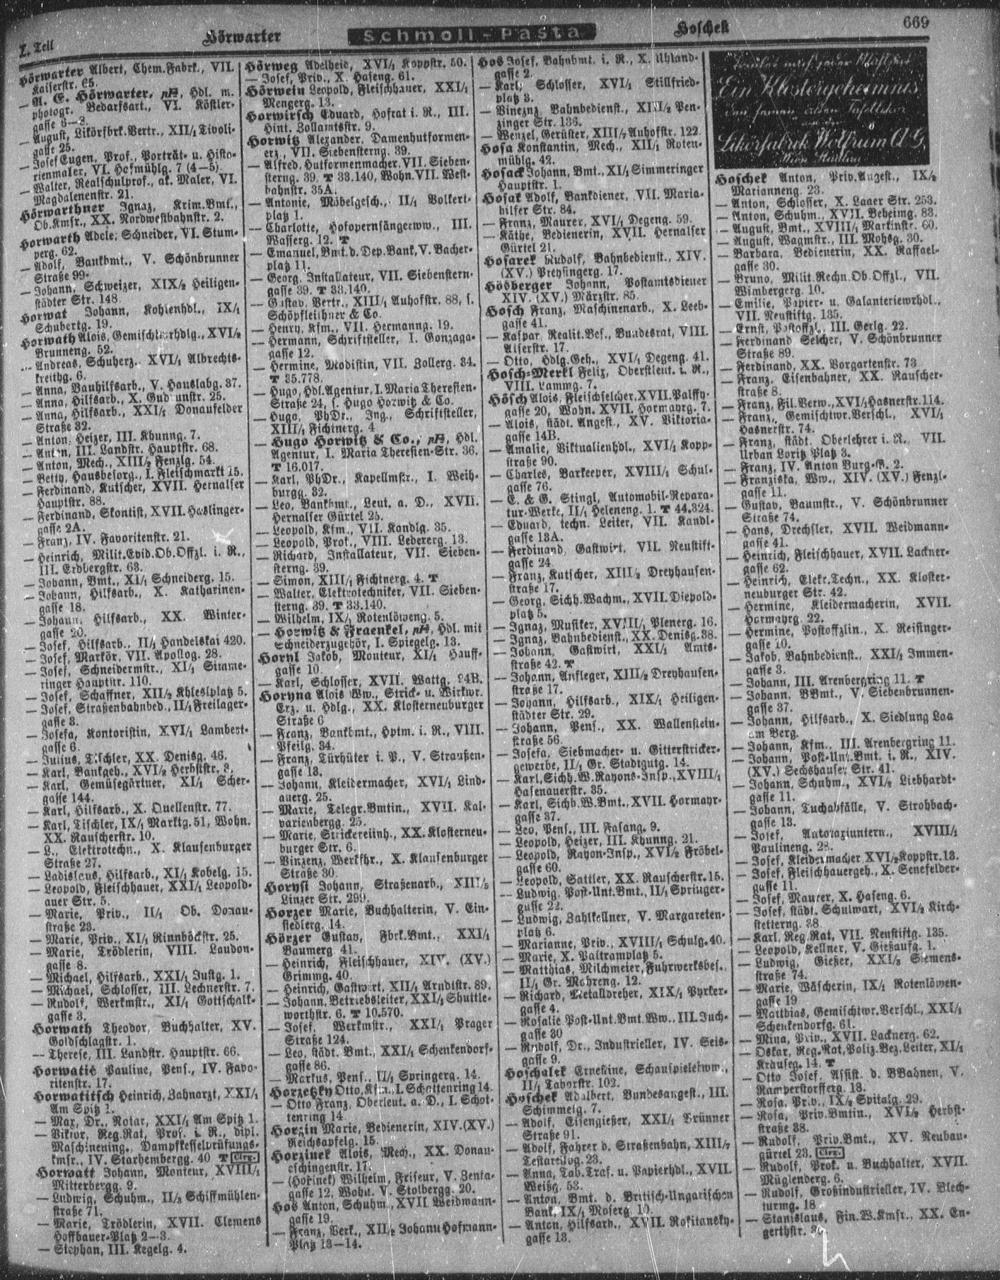 I. Teil
Hörwarter
Schmoll-Pasta
Hoschek
669
Hörwarter Albert, Chem.Fabrk., VII.
Kaiserstr. 65.
— A. E. Hörwarter, Hdl. m.
photogr. Bedarfsart., VI. Köstler-
gasse 6—8.
— August, Likörfbrk.Vertr., XII/1 Tivoli-
gasse 25.
— Josef Eugen, Prof., Porträt- u. Histo-
rienmaler, VI. Hofmühlg. 7 (4—5).
— Walter, Realschulprof., ak. Maler, VI.
Magdalenenstr. 21.
Hörwarthner Ignaz, Krim.Bmt.,
Ob.Kmsr., XX. Nordwestbahnstr. 2.
Horwarth Adele, Schneider, VI. Stum-
perg. 62.
— Adolf, Bankbmt., V. Schönbrunner
Straße 99.
— Johann, Schweizer, XIX/2 Heiligen-
städter Str. 148.
Horwat Johann, Kohlenhdl., IX/1
Schubertg. 19.
Horwath Alois, Gemischtwrhdlg., XVI/2
Brunneng. 52.
— Andreas, Schuherz., XVI/1 Albrechts-
kreithg. 6.
— Anna, Bauhilfsarb., V. Hauslabg. 37.
— Anna, Hilfsarb., X. Gudrunstr. 25.
— Anna, Hilfsarb., XXI/2 Donaufelder
Straße 32.
— Anton, Heizer, III. Khunng. 7.
— Anton, III. Landstr. Hauptstr. 68.
— Anton, Mech., XIII/2 Fenzlg. 54.
— Betty, Hausbesorg., I. Fleischmarkt 15.
— Ferdinand, Kutscher, XVII. Hernalser
Hauptstr. 88.
— Ferdinand, Skontist, XVII. Haslinger-
gasse 2A.
— Franz, IV. Favoritenstr. 21.
— Heinrich, Milit.Evid.Ob.Offzl. i. R.,
III. Erdbergstr. 63.
— Johann, Bmt., XI/1 Schneiderg. 15.
— Johann, Hilfsarb., X. Katharinen-
gasse 18.
— Johann, Hilfsarb., XX. Winter-
gasse 20.
— Josef, Hilfsarb., II/1 Handelskai 420.
— Josef, Markör, VII. Apollog. 28.
— Josef, Schneidermstr., XI/1 Simme-
ringer Hauptstr. 110.
— Josef, Schaffner, XII/2 Khleslplatz 5.
— Josef, Straßenbahnbed., II/1 Freilager-
gasse 3.
— Josefa, Kontoristin, XVI/1 Lambert-
gasse 6.
— Julius, Tischler, XX. Denisg. 46.
— Karl, Bankgeb., XVI/2 Herbststr. 3.
— Karl, Gemüsegärtner, XI/1 Scher-
gasse 144.
— Karl, Hilfsarb., X. Quellenstr. 77.
— Karl, Tischler, IX/1 Marktg. 51, Wohn.
XX. Rauscherstr. 10.
— L., Elektrotechn., X. Klausenburger
Straße 27.
— Ladislaus, Hilfsarb., XI/1 Kobelg. 15.
— Leopold, Fleischhauer, XXI/1 Leopold-
auer Str. 5.
— Marie, Priv., II/1 Ob. Donau-
straße 23.
— Marie, Priv., XI/1 Rinnböckstr. 25.
— Marie, Trödlerin, VIII. Laudon-
gasse 8.
— Michael, Hilfsarb., XXI/1 Justg. 1.
— Michael, Schlosser, III. Lechnerstr. 7.
— Rudolf, Werkmstr., XI/1 Gottschalk-
gasse 3.
Horwath Theodor, Buchhalter, XV.
Goldschlagstr. 1.
— Therese, III. Landstr. Hauptstr. 66.
Horwatić Pauline, Pens., IV. Favo-
ritenstr. 17.
Horwatitsch Heinrich, Zahnarzt, XXI/1
Am Spitz 1.
— Max, Dr., Notar, XXI/1 Am Spitz 1.
— Viktor, Reg.Rat, Prof. i. R., dipl.
Maschinening., Dampfkesselprüfungs-
kmsr., IV. Starhembergg. 40 T Cirg.
Horwatt Johann, Monteur, XVIII/1
Mitterbergg. 9.
— Ludwig, Schuhm., II/2 Schiffmühlen-
straße 71.
— Marie, Trödlerin, XVII. Clemens
Hoffbauer-Platz 2—3.
— Stephan, III. Kegelg. 4.
Hörweg Adelheid, XVI/1 Koppstr. 50.
— Josef, Priv., X. Haseng. 61.
Hörwein Leopold, Fleischhauer, XXI/1
Mengerg. 13.
Horwirsch Eduard, Hofrat i. R., III.
Hint. Zollamtsstr. 9.
Horwitz Alexander, Damenhutformen-
erz., VII. Siebensterng. 39.
— Alfred, Hutformenmacher, VII. Sieben-
sterng. 39. T 33.140, Wohn. VII. West-
bahnstr. 35A.
— Antonie, Möbelgesch., II/1 Volkert-
platz 1.
— Charlotte, Hofopernsängerww., III.
Wasserg. 12. T
— Emanuel, Bmt. d. Dep.Bank, V. Bacher-
platz 11.
— Georg, Installateur, VII. Siebenstern-
gasse 39. T 33.140.
— Gustav, Vertr., XIII/1 Auhofstr. 88, s.
Schöpfleithner & Co.
— Henry, Kfm., VII. Hermanng. 19.
— Hermann, Schriftsteller, I. Gonzaga-
gasse 12.
— Hermine, Modistin, VII. Zollerg. 34.
T 35.778.
— Hugo, Hdl.Agentur, I. Maria Theresien-
Straße 24, s. Hugo Horwitz & Co.
— Hugo, PhDr., Ing., Schriftsteller,
XIII/1 Fichtnerg. 4
— Hugo Horwitz & Co., Hdl.
Agentur, I. Maria Theresien-Str. 36.
T 16.017.
— Karl, PhDr., Kapellmstr., I. Weih-
burgg. 32.
— Leo, Bankbmt., Leut. a. D., XVII.
Hernalser Gürtel 25.
— Leopold, Kfm., VII. Kandlg. 35.
— Leopold, Prok., VIII. Lederg. 13.
— Richard, Installateur, VII. Sieben-
sterng. 39.
— Simon, XIII/1 Fichtnerg. 4. T
— Walter, Elektrotechniker, VII. Sieben-
sterng. 39. T 33.140.
— Wilhelm, IX/1 Rotenlöweng. 5.
— Horwitz & Fraenkel, Hdl. mit
Schneiderzugehör, I. Spiegelg. 13.
Horyl Jakob, Monteur, XI/1 Hauff-
gasse 10.
— Karl, Schlosser, XVII. Wattg. 24B.
Horyna Alois Ww., Strick- u. Wirkwr.
Erz. u. Hdlg., XX. Klosterneuburger
Straße 6
— Franz, Bankbmt., Hptm. i. R., VIII.
Pfeilg. 34.
— Franz, Türhüter i. P., V. Straußen-
gasse 18.
— Johann, Kleidermacher, XVI/1 Lind-
auerg. 25.
— Marie, Telegr.Bmtin., XVII. Kal-
varienbergg. 25.
— Marie, Strickereiinh., XX. Klosterneu-
burger Str. 6.
— Vinzenz, Werkfhr., X. Klausenburger
Straße 30.
Horysl Johann, Straßenarb., XIII/2
Linzer Str. 299.
Horzer Marie, Buchhalterin, V. Ein-
siedlerg. 14.
Hörzer Gustav, Fbrk.Bmt., XXI/1
Baumerg. 41.
— Heinrich, Fleischhauer, XIV. (XV.)
Grimmg. 40.
— Heinrich, Gastwirt, XII/1 Arndtstr. 89.
— Johann, Betriebsleiter, XXI/4 Shuttle-
worthstr. 6. T 10.570.
— Josef, Werkmstr., XXI/1 Prager
Straße 124.
— Leo, städt. Bmt., XXI/1 Schenkendorf-
gasse 86.
— Markus, Pens., II/1 Springerg. 14.
Horzetzky Otto, Kfm., I. Schottenring 14.
— Otto Franz, Oberleut. a. D., I. Schot-
tenring 14
Horzin Marie, Bedienerin, XIV. (XV.)
Reichsapfelg. 15.
Horzinek Alois, Mech., XX. Donau-
eschingenstr. 17.
— (Hořinek) Wilhelm, Friseur, V. Zenta-
gasse 12, Wohn. V. Stolbergg. 20.
Hos Anton, Schuhm., XVII. Weidmann-
gasse 19.
— Franz, Verk., XII/2 Johann Hofmann-
Platz 13—14.
Hos Josef, Bahnbmt. i. R., X. Uhland-
gasse 2.
— Karl, Schlosser, XVI/1 Stillfried-
platz 3.
— Vinzenz, Bahnbedienst., XIII/2 Pen-
zinger Str. 136.
— Wenzel, Gerüster, XIII/2 Auhofstr. 122.
Hosa Konstantin, Mech., XII/1 Roten-
mühlg. 42.
Hosack Johann, Bmt., XI/1 Simmeringer
Hauptstr. 1.
Hosak Adolf, Bankdiener, VII. Maria-
hilfer Str. 84.
— Franz, Maurer, XVI/1 Degeng. 59.
— Käthe, Bedienerin, XVII. Hernalser
Gürtel 21.
Hosarek Rudolf, Bahnbedienst., XIV.
(XV.) Preysingerg. 17.
Hösberger Johann, Postamtsdiener
XIV. (XV.) Märzstr. 85.
Hosch Franz, Maschinenarb., X. Leeb-
gasse 41.
— Kaspar, Realit.Bes., Bundesrat, VIII.
Alserstr. 17.
— Otto, Hdlg.Geh., XVI/1 Degeng. 41.
Hosch-Merkl Felix, Oberstleut. i. R.,
VIII. Lammg. 7.
Hösch Alois, Fleischselcher, XVII. Palffy-
gasse 20, Wohn. XVII. Hormayrg. 7.
— Alois, städt. Angest., XV. Viktoria-
gasse 14B.
— Amalie, Viktualienhdl., XVI/1 Kopp-
straße 90.
— Charles, Barkeeper, XVIII/1 Schul-
gasse 76.
— E. & G. Stingl, Automobil-Repara-
tur-Werke, II/1 Heleneng. 1. T 44.324.
— Eduard, techn. Leiter, VII. Kandl-
gasse 13A.
— Ferdinand, Gastwirt, VII. Neustift-
gasse 24
— Franz, Kutscher, XIII/2 Dreyhausen-
straße 17.
— Georg, Sichh.Wachm., XVII. Diepold-
platz 5.
— Ignaz, Musiker, XVIII/1 Plenerg. 16.
— Ignaz, Bahnbedienst., XX. Denisg. 38.
— Johann, Gastwirt, XXI/1 Amts-
straße 42. T
— Johann, Anfleger, XIII/2 Dreyhausen-
straße 17.
— Johann, Hilfsarb., XIX/1 Heiligen-
städter Str. 29.
— Johann, Pens., XX. Wallenstein-
straße 56.
— Josefa, Siebmacher- u. Gitterstricker-
gewerbe, II/1 Gr. Stadtgutg. 14.
— Karl, Sichh.W.Rayons-Insp., XVIII/1
Hasenauerstr. 35.
— Karl, Sichh.W.Bmt., XVII. Hormayr-
gasse 37.
— Leo, Pens., III. Fasang. 9.
— Leopold, Heizer, III. Khunng. 21.
— Leopold, Rayon-Insp., XVI/2 Fröbel-
gasse 60.
— Leopold, Sattler, XX. Rauscherstr. 15.
— Ludwig, Post-Unt.Bmt., II/1 Springer-
gasse 22.
— Ludwig, Zahlkellner, V. Margareten-
platz 6.
— Marianne, Priv., XVIII/1 Schulg. 40.
— Marie, X. Paltramplatz 5.
— Matthias, Milchmeier, Fuhrwerksbes.,
II/1 Gr. Mohreng. 12.
— Richard, Metalldreher, XIX/1 Pyrker-
gasse 4.
— Rosalie, Post-Unt.Bmt.Ww., III. Juch-
gasse 30
— Rudolf, Dr., Industrieller, IV. Seis-
gasse 9.
Hoschalek Ernestine, Schauspielerww.,
II/1 Taborstr. 102.
Hoschek Adalbert, Bundesangest., III.
Schimmelg. 7.
— Adolf, Eisengießer, XXI/1 Brünner
Straße 91.
— Adolf, Fahrer d. Straßenbahn, XIII/2
Testarellog. 23.
— Anna, Tab.Traf. u. Papierhdl., XVII.
Weißg. 53.
— Anton, Bmt. d. Britisch-Ungarischen
Bank, IX/1 Moserg. 10.
— Anton, Hilfsarb., XVII. Rokitansky-
gasse 13.
Ein Klostergeheimnis
Likörfabrik Wolfrum A.G.
Hoschek Anton, Priv.Angest., IX/2
Marianneng. 23.
— Anton, Schlosser, X. Laaer Str. 253.
— Anton, Schuhm., XVII. Beheimg. 83.
— August, Bmt., XVIII/1 Martinstr. 60.
— August, Wagmstr., III. Mohsg. 30.
— Barbara, Bedienerin, XX. Raffael-
gasse 30.
— Bruno, Milit.Rechn.Ob.Offzl., VII.
Wimbergerg. 10.
— Emilie, Papier- u. Galanteriewrhdl.,
VII. Neustiftg. 135.
— Ernst, Postoffzl., III. Gerlg. 22.
— Ferdinand, Selcher, V. Schönbrunner
Straße 89.
— Ferdinand, XX. Vorgartenstr. 73
— Franz, Eisenbahner, XX. Rauscher-
straße 8.
— Franz, Fil.Verw., XVI/1 Hasnerstr. 114.
— Franz, Gemischtwr.Verschl., XVI/1
Hasnerstr. 74.
— Franz, städt. Oberlehrer i. R., VII.
Urban Loritz Platz 3.
— Franz, IV. Anton Burg-G. 2.
— Franziska, Ww., XIV. (XV.) Fenzl-
gasse 11.
— Gustav, Baumstr., V. Schönbrunner
Straße 74.
— Hans, Drechsler, XVII. Weidmann-
gasse 41.
— Heinrich, Fleischhauer, XVII. Lackner-
gasse 62.
— Heinrich, Elektr.Techn., XX. Kloster-
neuburger Str. 42.
— Hermine, Kleidermacherin, XVII.
Hormayrg. 22.
— Hermine, Postoffzlin., X. Reisinger-
gasse 10.
— Jakob, Bahnbedienst., XXI/1 Immen-
gasse 3.
— Johann, III. Arenbergring 11. T
— Johann, BBmt., V. Siebenbrunnen-
gasse 37.
— Johann, Hilfsarb., X. Siedlung Laa
am Berg.
— Johann, Kfm., III. Arenbergring 11.
— Johann, Post-Unt.Bmt. i. R., XIV.
(XV.) Sechshauser Str. 41.
— Johann, Schuhm., XVI/2 Liebhardt-
gasse 11.
— Johann, Tuchabfälle, V. Strohbach-
gasse 13.
— Josef, XVIII/1
Paulineng. 28.
— Josef, Kleidermacher, XVI/2 Koppstr. 13.
— Josef, Fleischhauergeh., X. Senefelder-
gasse 11.
— Josef, Maurer, X. Haseng. 6.
— Josef, städt. Schulwart, XVI/2 Kirch-
stetterng. 28.
— Karl, Reg.Rat, VII. Neustiftg. 135.
— Leopold, Kellner, V. Gießaufg. 1.
— Ludwig, Gießer, XXI/2 Siemens-
straße 74.
— Marie, Wäscherin, IX/1 Rotenlöwen-
gasse 19
— Matthias, Gemischtwr.Verschl., XXI/1
Schenkendorfg. 61.
— Mina, Priv., XVII. Lacknerg. 62.
— Oskar, Reg.Rat, Poliz.Bez.Leiter, XI/1
Krausegg. 14. T
— Otto Josef, Assist. d. BBahnen, V.
Ramperstorfferg. 18.
— Rosa, Priv., IX/2 Spitalg. 29.
— Rosa, Priv.Bmtin., XVI/2 Herbst-
straße 38.
— Rudolf, Priv.Bmt., XV. Neubau-
gürtel 23. Cirg.
— Rudolf, Prok. u. Buchhalter, XVII.
Müglenderg. 6.
— Rudolf, Großindustrieller, IV. Blech-
turmg. 18.
— Stanislaus, Fin.W.Kmsr., XX. En-
gerthstr.